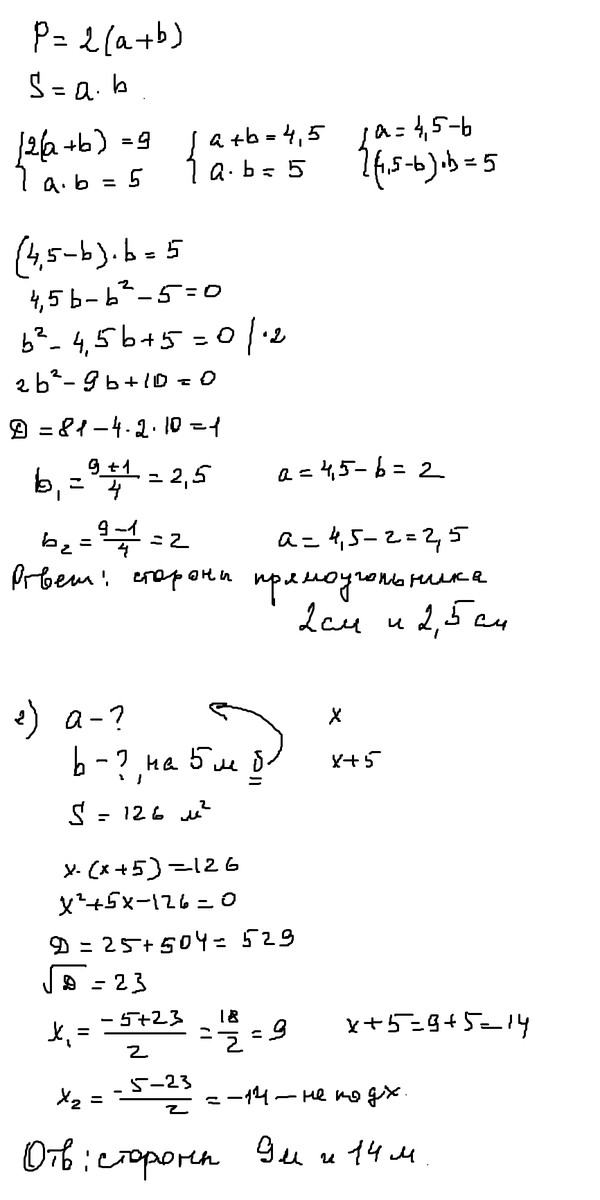 P = 2(a+b)
S = a·b
{2(a+b) = 9 {a+b = 4,5 {a = 4,5-b
a·b = 5 a·b = 5 (4,5-b)·b = 5
(4,5-b)·b = 5
4,5b-b²-5=0
b²-4,5b+5=0 |·2
2b²-9b+10=0
D = 81-4·2·10=1
b₁ = (9+1)/4 = 2,5 a = 4,5-b = 2
b₂ = (9-1)/4 = 2 a = 4,5-2=2,5
Ответ: стороны прямоугольника
2см и 2,5см
2) a-? x
b-?, на 5 м б x+5
S = 126 м²
x·(x+5)=126
x²+5x-126=0
D = 25+504 = 529
√D = 23
x₁ = (-5+23)/2 = 18/2 = 9 x+5=9+5=14
x₂ = (-5-23)/2 = -14 - не подх.
Отв: стороны 9м и 14м.